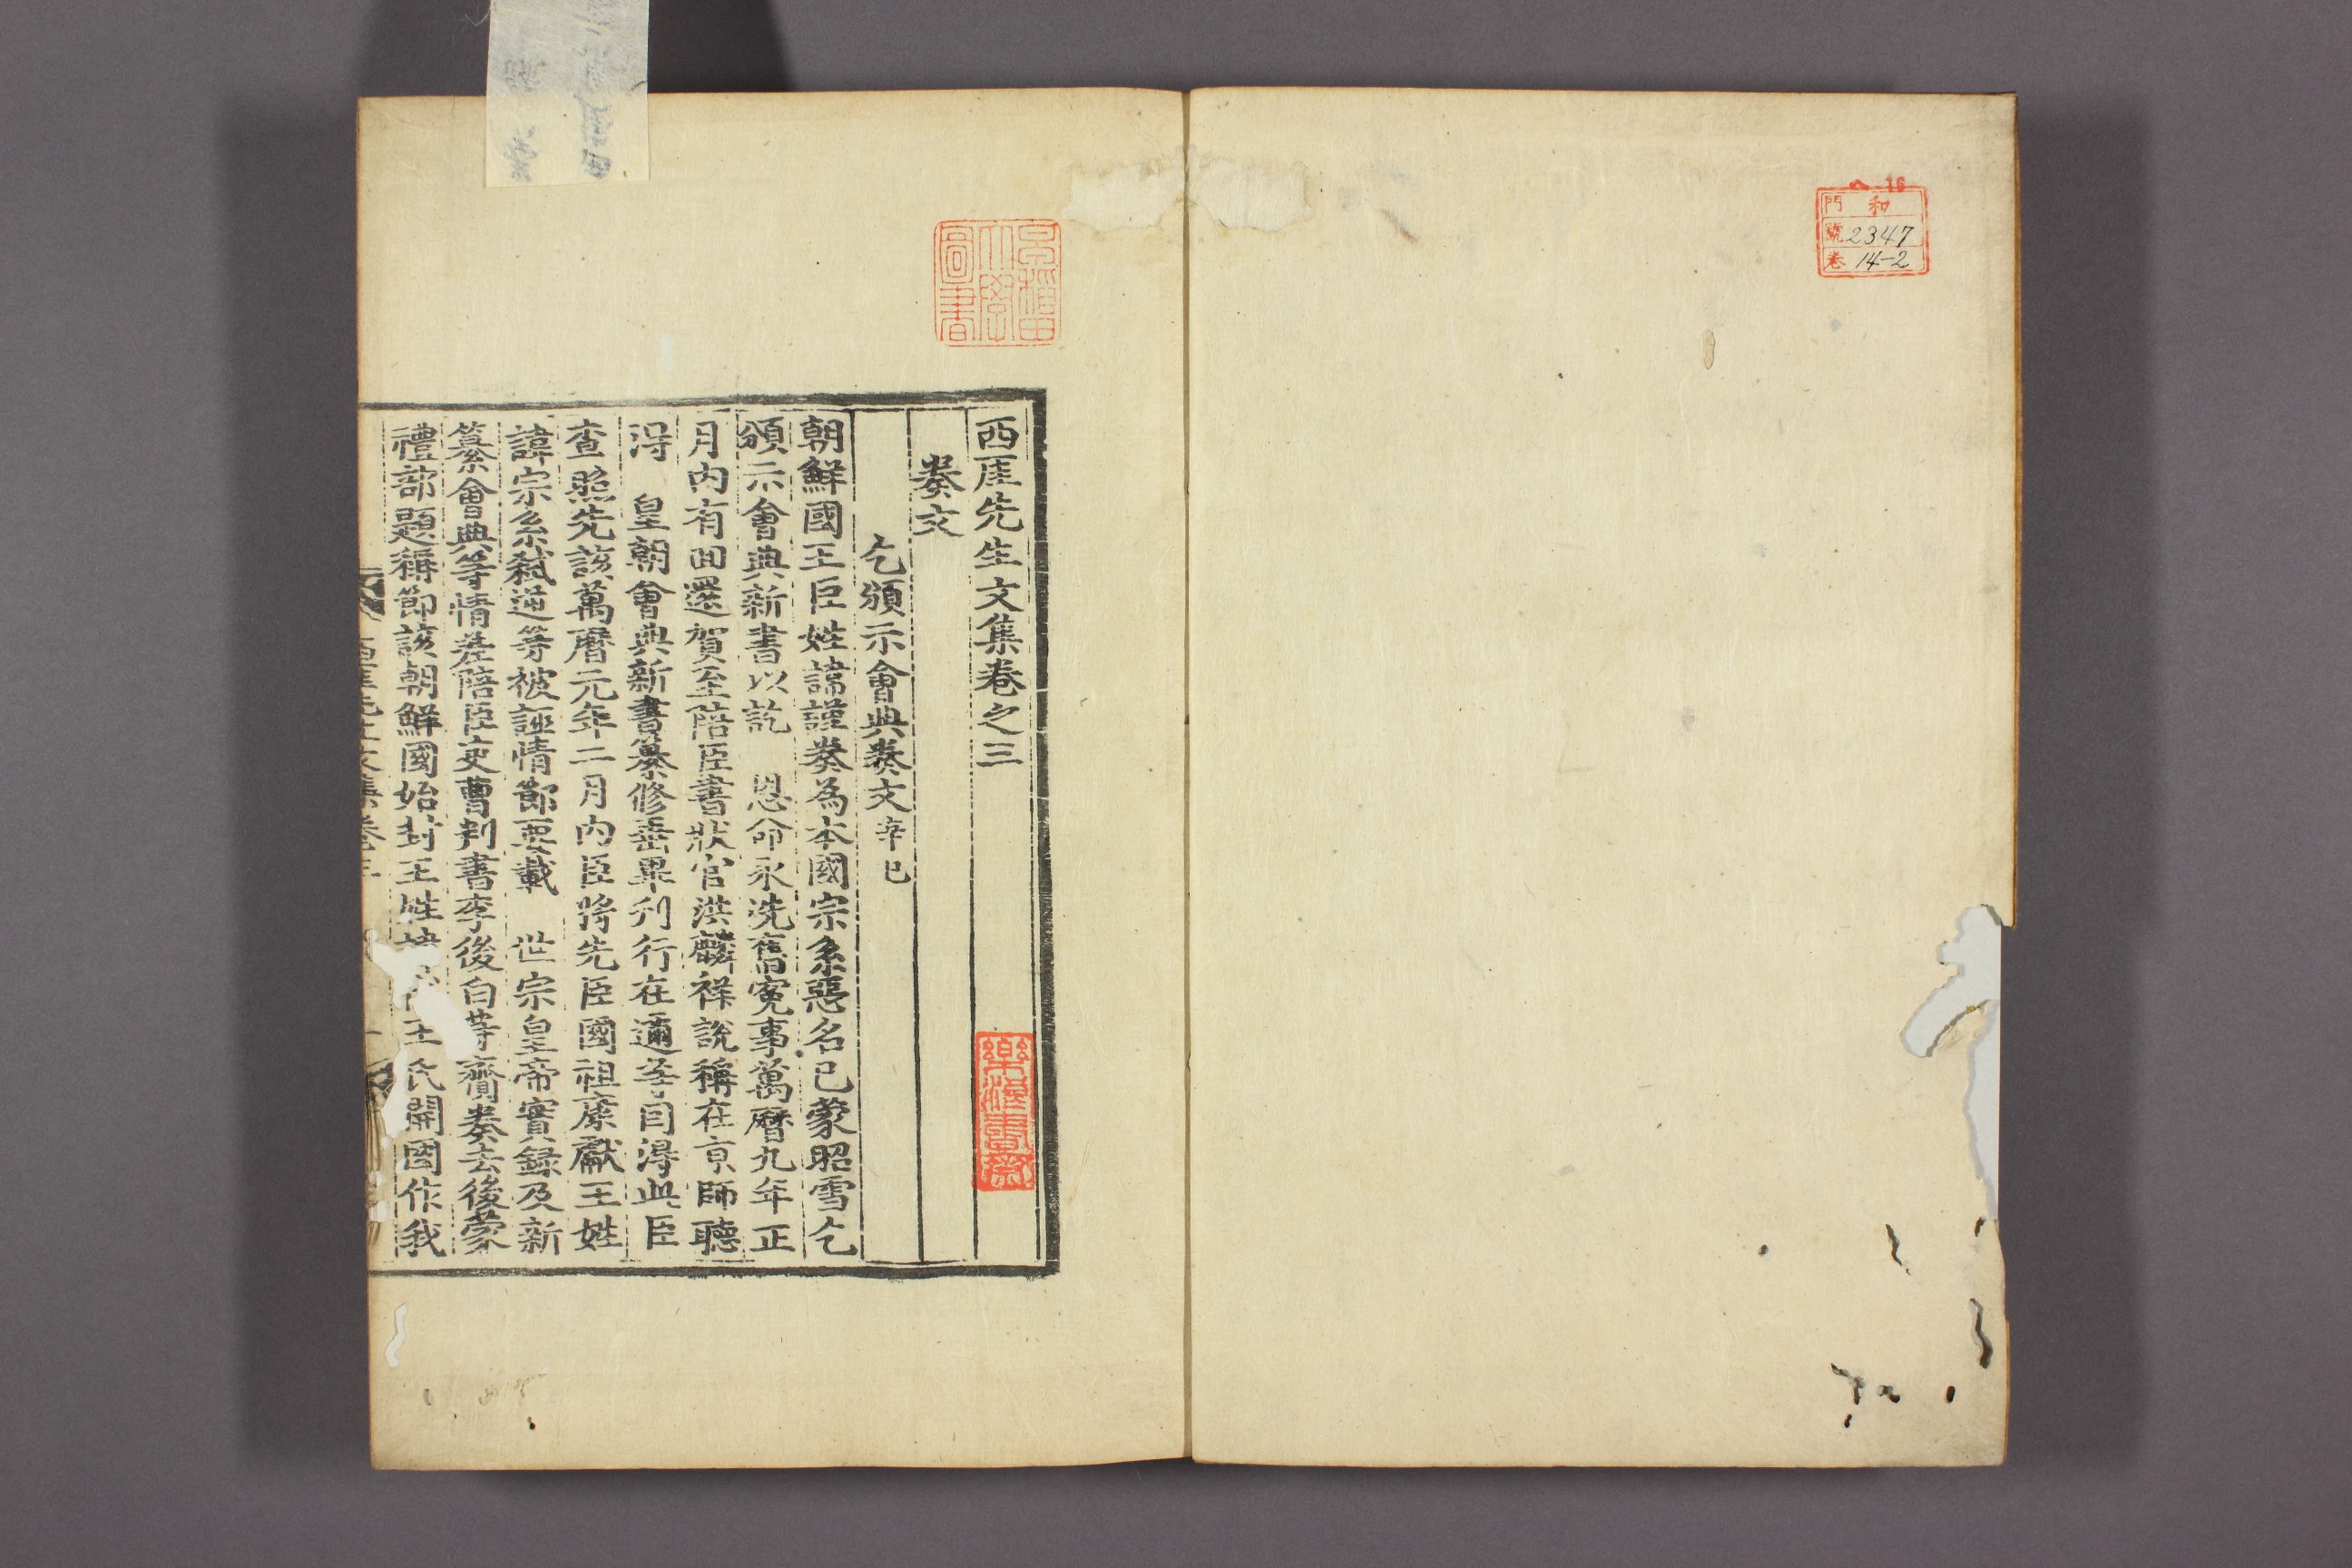 和
門
號 2347
卷 14-2
早稲田
大學
圖書
西厓先生文集卷之三
奏文
乞頒示會典奏文 辛巳
朝鮮國王臣姓諱謹奏為本國宗系惡名已蒙昭雪乞
頒示會典新書以訖 恩命永洗舊寃事萬曆九年正
月內有回還賀至陪臣書狀官洪麟祥說稱在京師聽
得 皇朝會典新書纂修垂畢刊行在邇等因得此臣
查照先該萬曆元年二月內臣將先臣國祖康獻王姓
諱宗系弒逆等被誣情節要載 世宗皇帝實錄及新
纂會典等情差陪臣吏曹判書李後白等齎奏去後蒙
禮部題稱節該朝鮮國始封王姓 王氏開國作我